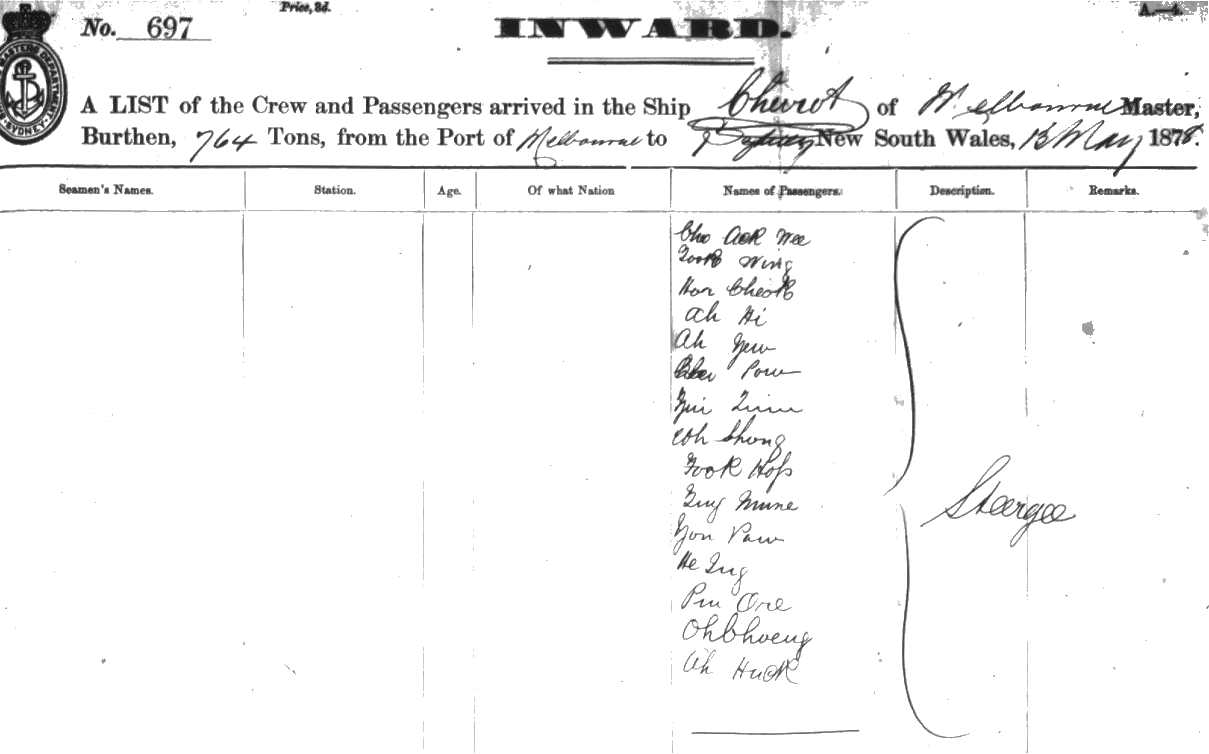 Price, 3d.
A.—4.
No. 697
INWARD.
A LIST of the Crew and Passengers arrived in the Ship Cheviot of Melbourne Master,
Burthen, 764 Tons, from the Port of Melbourne to Sydney New South Wales, 13 May 1878.
Seamen's Names. Station. Age. Of what Nation Names of Passengers. Description. Remarks.
Cho Ack Wee
Took Wing
Hor Cheok
Ah Hi
Ah Yew
Pow
Oh Shong
Fook Hop
Mune
Yon Paw
He
Pin One
Oh Choeng
Ah Huck
Steergee